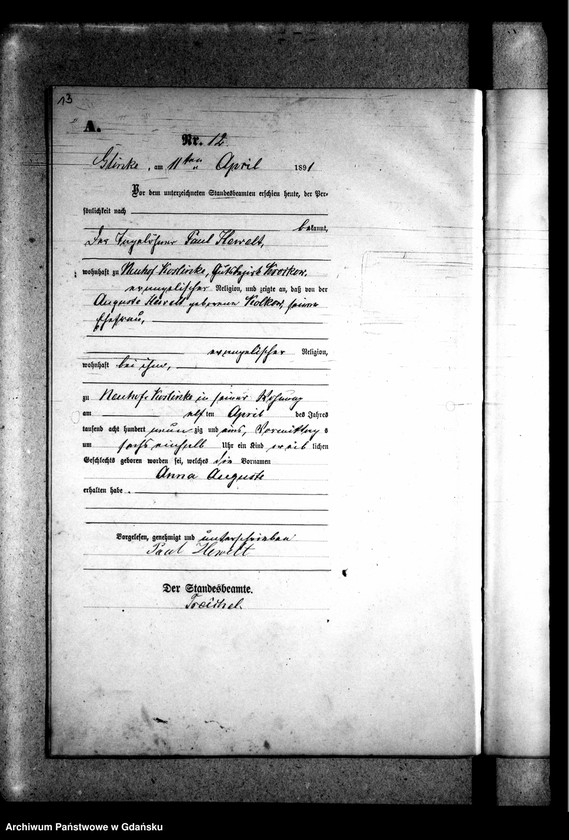 13
A.
Nr. 12.
am 11ten April 1891
Vor dem unterzeichneten Standesbeamten erschien heute, der Per-
sönlichkeit nach
bekannt,
der Paul Hewelt,
wohnhaft zu Neuhof
evangelischer Religion, und zeigte an, daß von der
Auguste Hewelt geborene seiner
Ehefrau,
evangelischer Religion,
wohnhaft bei ihm,
zu Neuhof in seiner Wohnung
am elften April des Jahres
tausend acht hundert neun zig und eins, Vormittag s
um sechs einhalb Uhr ein Kind weib lichen
Geschlechts geboren worden sei, welches die Vornamen
Anna Auguste
erhalten habe.
Vorgelesen, genehmigt und unterschrieben
Paul Hewelt
Der Standesbeamte.
Archiwum Państwowe w Gdańsku